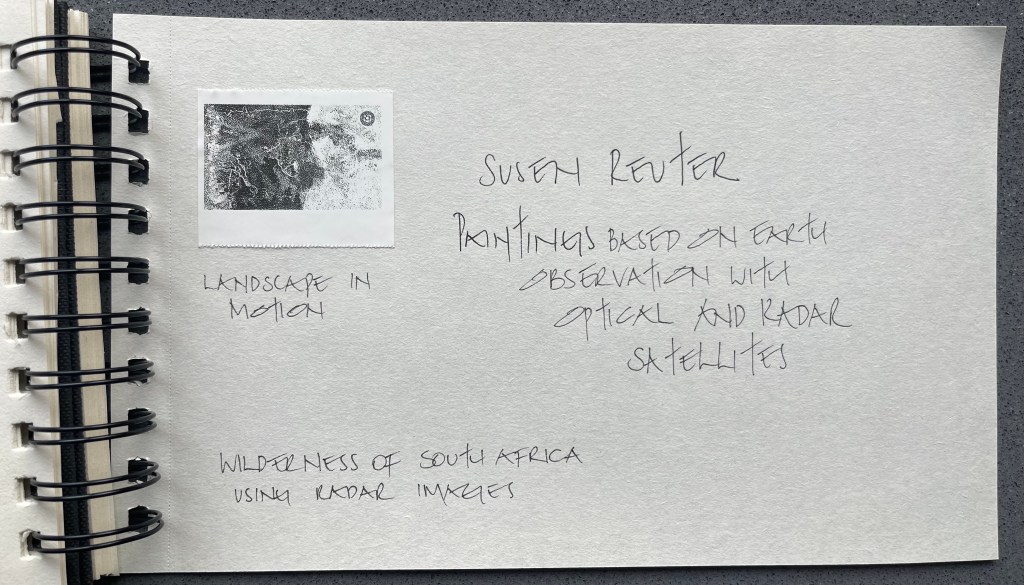 SUSEN REUTER
PAINTINGS BASED ON EARTH
OBSERVATION WITH
OPTICAL AND RADAR
SATELLITES
LANDSCAPE IN
MOTION
WILDERNESS OF SOUTH AFRICA
USING RADAR IMAGES